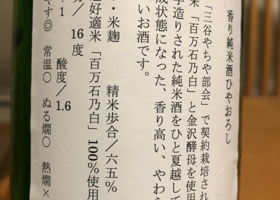 香り純米酒ひやおろし
「三谷やちや部会」で契約栽培され
米「百万石乃白」と金沢酵母を使用
手造りされた純米酒をひと夏越して
成状態になった、香り高い、やわら
いお酒です。
・米麹 精米歩合／六五％
好適米「百万石乃白」100％使用
分／16度
＋1 酸度／1.6
やす◎ 常温〇 ぬる燗〇 熱燗×